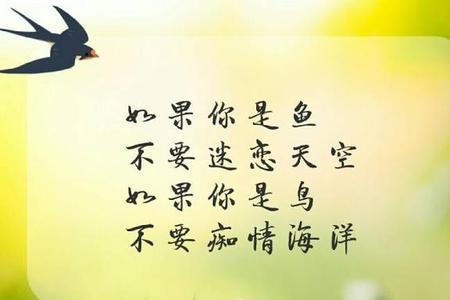 如果你是鱼
不要迷恋天空
如果你是鸟
不要痴情海洋